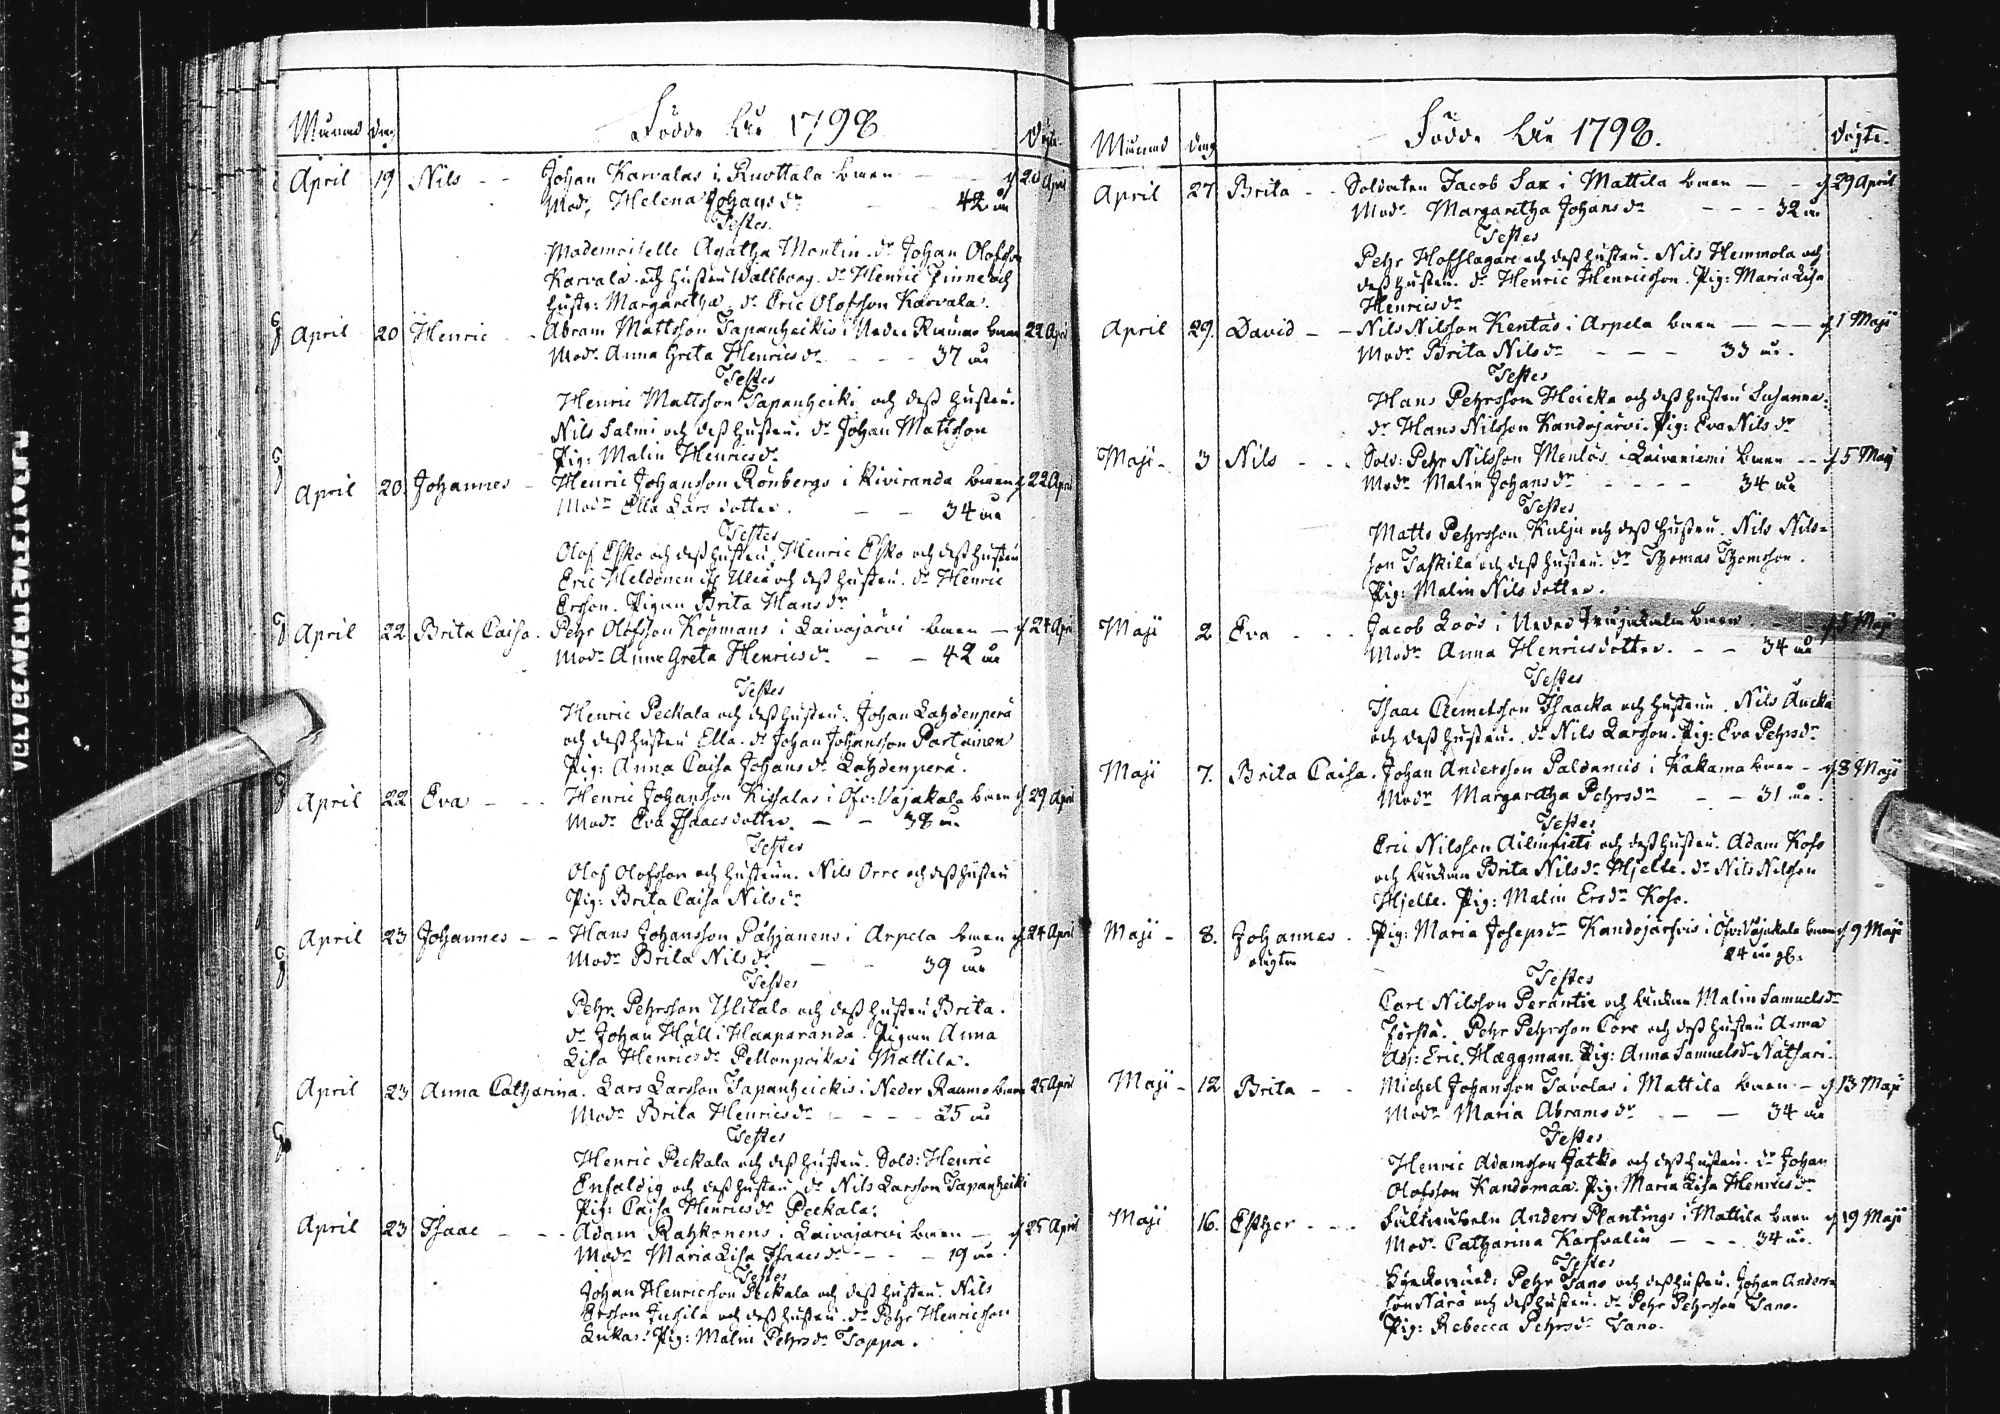 Månad dag Födde Åhr 1798 Döpte.
April 19 Nils - - Johan Karvalas i Ruottala barn - - d 20 April
Modr Helena Johansdr - - 42 år
Testes.
Mademoiselle Agatha Montin. dr Johan Olofsson
Karvala och hustru Wallborg. dr Henric Zinne och
hustr: Margaretha. dr Eric Olofsson Karvala.
April 20 Henric - Abram Mattsson Tapanheikis i Neder Raumo barn 22 April
Modr Anna Greta Henricsdr - - - 37 år
Testes
Henric Mattsson Tapanheiki och dess hustru.
Nils Salmi och dess hustru. dr Johan Mattsson
Pig: Malin Henricsdr
April 20. Johannes - Henric Johansson Rönbergs i Kiviranda barn d 22 April
Modr Ella Lars dotter. - - 34 år
Testes
Olof Esko och dess hustru. Henric Esko och dess hustru
Eric Heldonen och dess hustru. dr Henric
Ersson. Pigan Brita Hansdr
April 22 Brita Caisa. Pehr Olofsson Köpmans i Laivajärvi barn - d 24 Apr
Modr Anna Greta Henricsdr - - 42 år
Testes
Henric Peckala och dess hustru. Johan Lahdenperä
och dess hustru Ella. dr Johan Johansson Partainen
Pig: Anna Caisa Johansdr Lahdenperä.
April 22 Eva - - - Henric Johansson Kissalas i Öfv: Vojakala barn d 29 April
Modr Eva Isaacsdotter. - - 38 år
Testes
Olof Olofsson och hustrun. Nils Orre och dess hustru
Pig: Brita Caisa Nilsdr
April 23 Johannes - - Hans Johansson Pähjanens i Arpela barn d 24 April
Modr Brita Nilsdr - - 39 år
Testes
Pehr Pehrsson Ylitalo och dess hustru Brita.
dr Johan Häll i Haaparanda. Pigan Anna
Lisa Henricsdr Pellonpeikas i Mattila.
April 23 Anna Catharina. Lars Larsson Tapanheickis i Neder Raumo barn 25 April
Modr Brita Henricsdr - - - - 25 år
Testes
Henric Peckala och dess hustru. Sold: Henric
Enfaldig och dess hustru. dr Nils Larsson Tapanheiki
Pig: Caisa Henricsdr Peckala.
April 23 Isaac - - - Adam Rahkonens i Laivajärvi barn - d 25 April
Modr Maria Lisa Isaacsdr - - - 19 år.
Testes
Johan Henricsson Peckala och dess hustru. Nils
Ersson Jussila och dess hustru. dr Pehr Henricsson
Lukas. Pig: Malin Pehrsdr Toppa.
Månad dag Födde Åhr 1798. Döpte.
April 27 Brita - - Soldaten Jacob Sax i Mattila barn - - d 29 April
Modr Margaretha Johansdr - - - 32 år
Testes
Pehr Hofslagare och dess hustru. Nils Hemmola och
dess hustru. dr Henric Henricsson. Pig: Maria Lisa
Henricsdr
April 29. David - - Nils Nilsson Kentäs i Arpela barn - - - d 1 Maji
Modr Brita Nilsdr - - - 33 år.
Testes
Hans Pehrsson Heicka och dess hustru Susanna.
dr Hans Nilsson Kandojärvi. Pig: Eva Nilsdr
Maji - 3 Nils - - - Sold: Pehr Nilsson Mentös i Laivaniemi barn - - d 5 Maij
Modr Malin Johansdr - - - - 34 år
Testes
Matts Pehrsson Kulju och dess hustru. Nils Nils=
son Taskila och dess hustru. dr Thomas Thomsson.
Pig: Malin Nilsdotter.
Maji 2 Eva - - - Jacob Loos i Neder barn - - d 5 Maji
Modr Anna Henricsdotter. - - 34 år
Testes
Isaac Clemetsson Isaacka och hustrun. Nils Aucka
och dess hustru. dr Nils Larsson. Pig: Eva Pehrsdr
Maji 7. Brita Caisa. Johan Andersson Paldanus i Kakama barn - d 8 Maji
Modr Margaretha Pehrsdr - - 31 år.
Testes
Eric Nilsson Ailinpieti och dess hustru. Adam Koso
och Enkan Brita Nilsdr Hjelte. dr Nils Nilsson
Hjelte. Pig: Malin Ersdr Koso.
Maji - 8. Johannes - Pig: Maria Josepsdr Kandojärfvis i Öfv: Vojakala barn d 9 Maji
oägta 24 år gl.
Testes
Carl Nilsson Peräntie och Enkan Malin Samuelsdr
Förstä. Pehr Pehrsson Core och dess hustru Anna
Adj: Eric. Hæggman. Pig: Anna Samuelsd. Nathari.
Maji - 12 Brita - - Michel Johansson Tavolas i Mattila barn - d 13 Maji
Modr Maria Abramsdr - - 34 år
Testes
Henric Adamsson Jatko och dess hustru. dr Johan
Olofsson Kandomaa. Pig: Maria Lisa Henricsdr
Maji 16. Esther - - - Fältwäbeln Anders Plantings i Mattila barn d 19 Maji
Modr Catharina Karfvalin - - - 34 år.
Testes
Kyrckovärd: Pehr Tano och dess hustru. Johan Anders=
son Närä och dess hustru. dr Pehr Pehrsson Tano.
Pig: Rebecca Pehrsdr Tano.